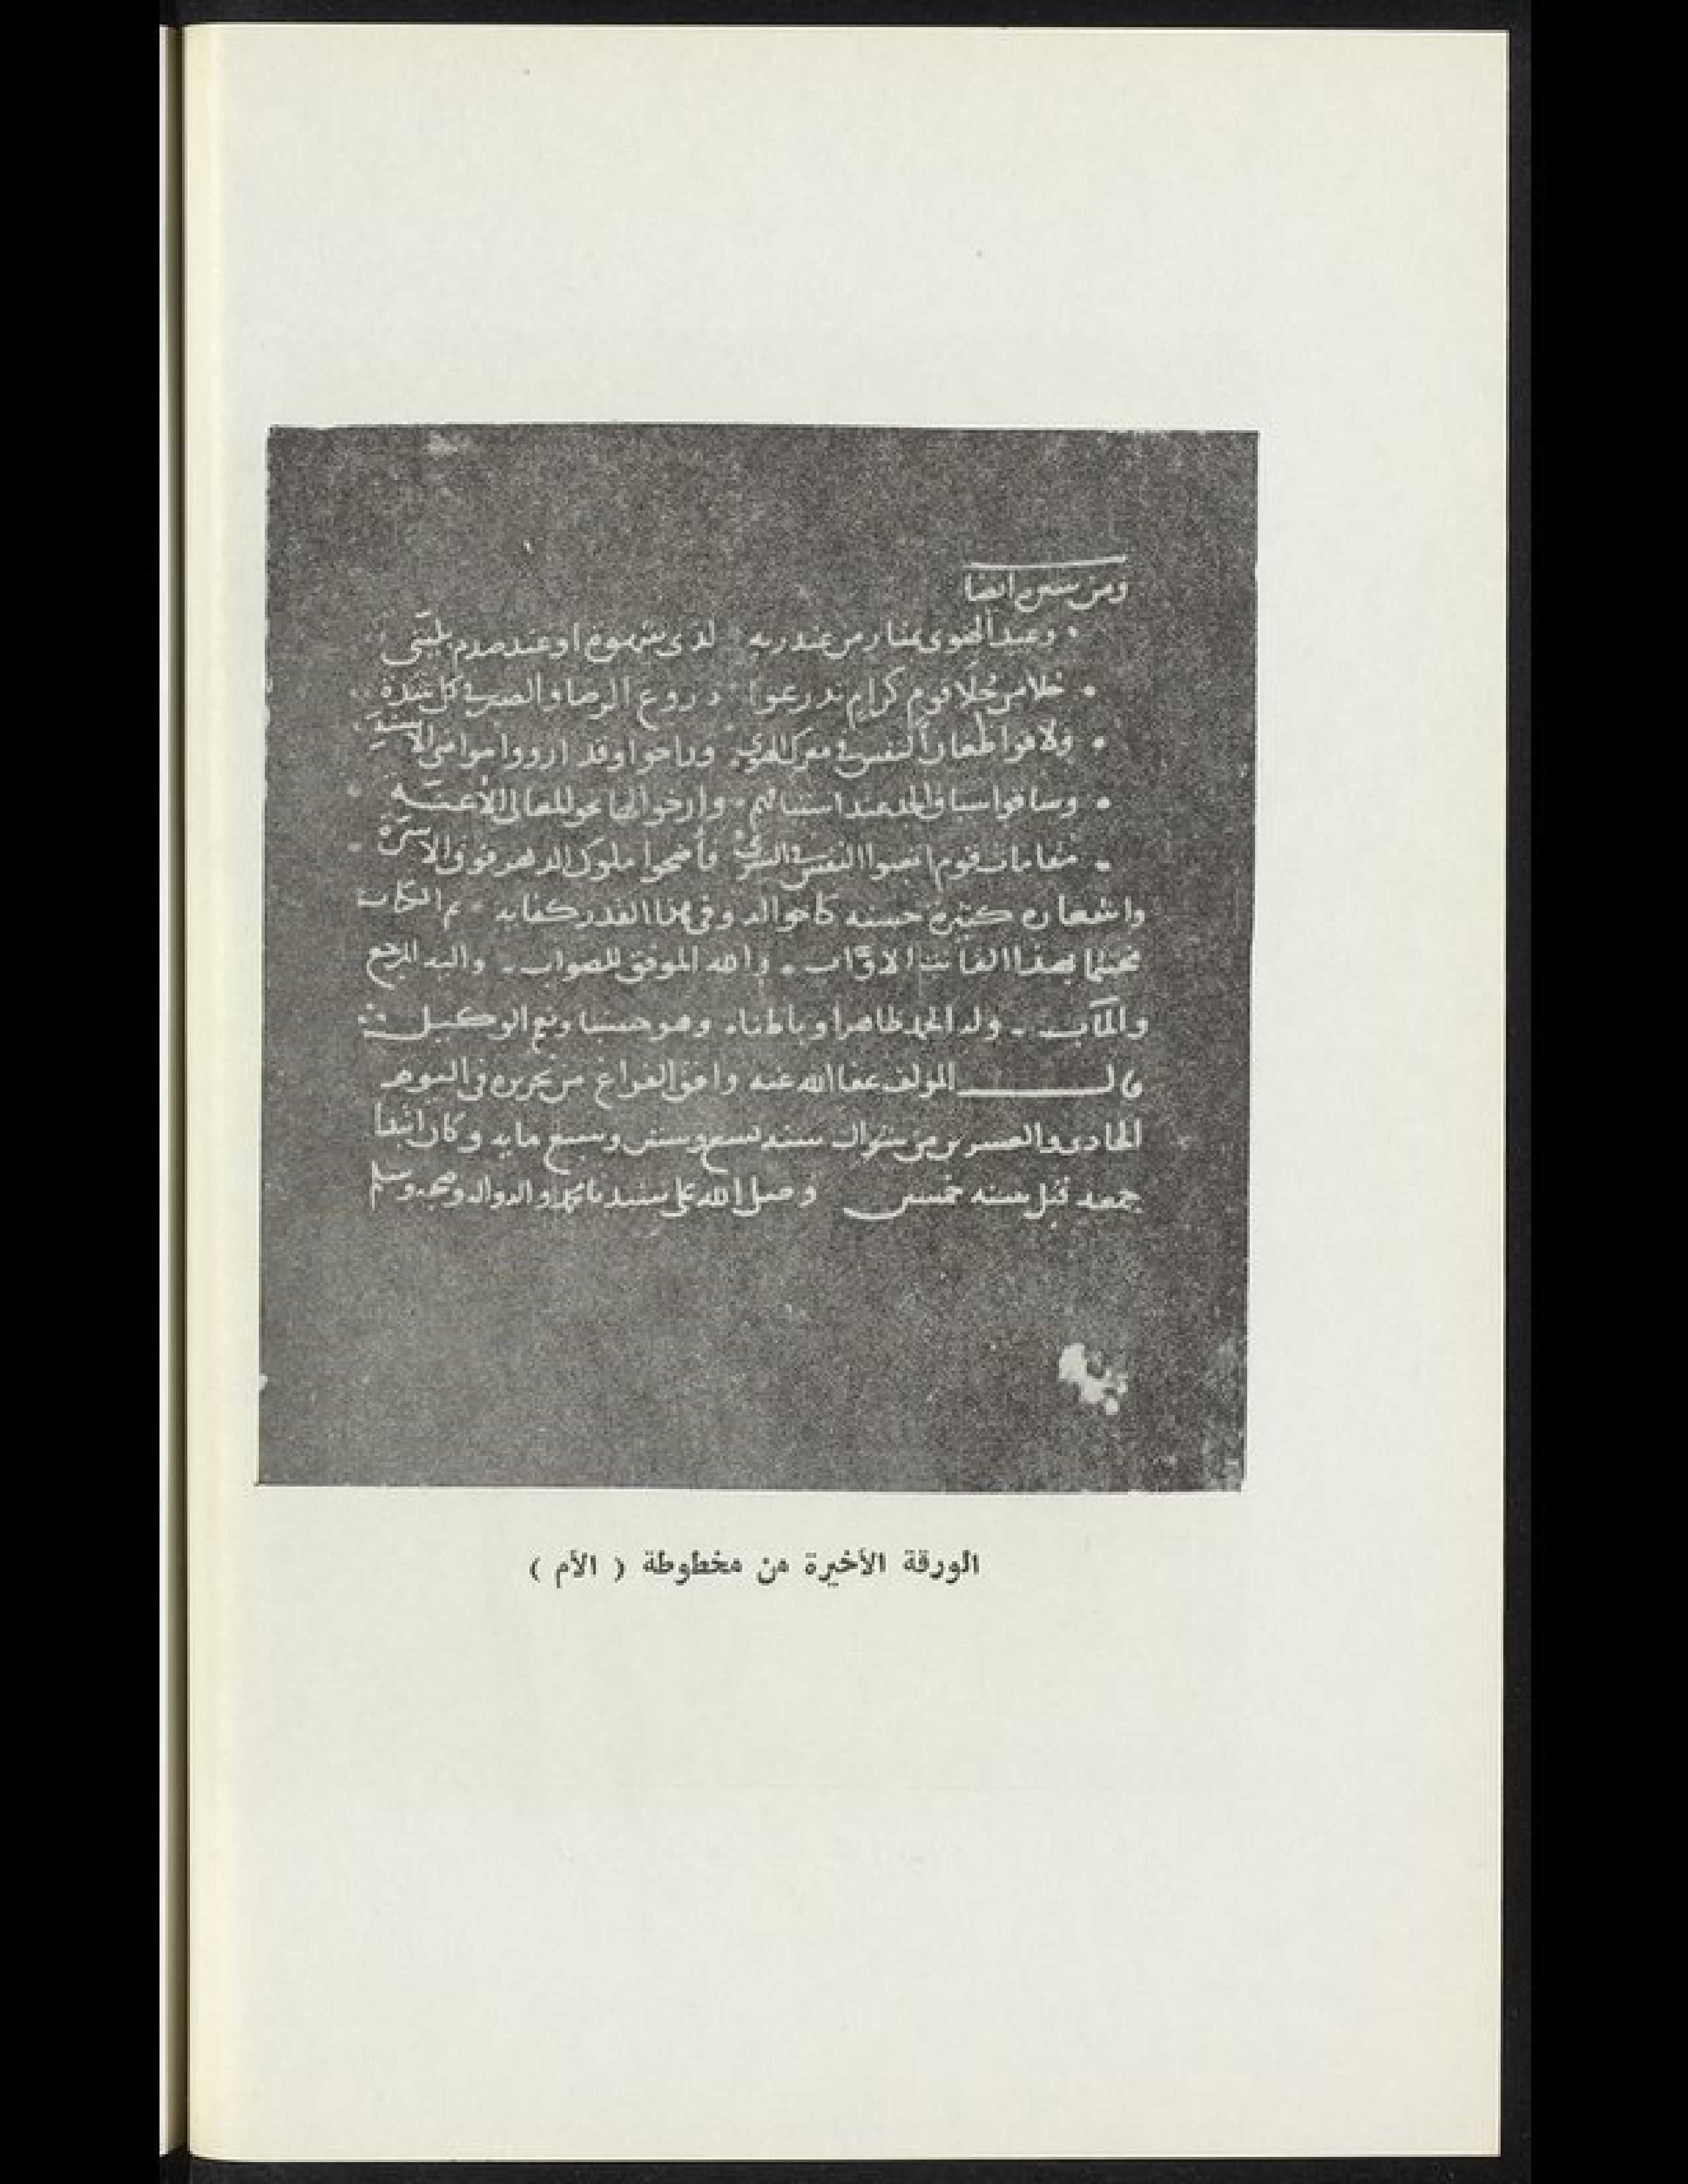 ومن شعره ايضا
وعبد الهوى يمتاز من عند ربه لدى شهوة او عند صدم بليّة
خلا من حُلا قوم كرام تدرعوا دروع الرضا والصبر في كل شدة
ولاقوا طعان النفس في معرك الهوى وراحوا وقد ارووا مواضي الاسنة
وساقوا سباق الجد عند استباقهم وارخوا لها نحو المعالي الأعنّه
مقامات قوم اتعبوا النفس في السرى فأضحوا ملوك الدهر فوق الاسرّة
واشعاره كثيرة حسنه كاحواله وفي هذا القدر كفايه تم الكتاب
مختتما بهذا الاواب والله الموفق للصواب واليه المرجع
والمآب وله الحمد ظاهرا وباطنا وهو حسبنا ونعم الوكيل
قال المولف عفا الله عنه وافق الفراغ من تحريره في اليوم
الحادى والعشرين من شوال سنه تسع وستين وسبع مايه وكان
جمعه قبل سنه خمس وصلى الله على سيدنا محمد واله وصحبه وسلم
الورقة الأخيرة من مخطوطة ( الأم )